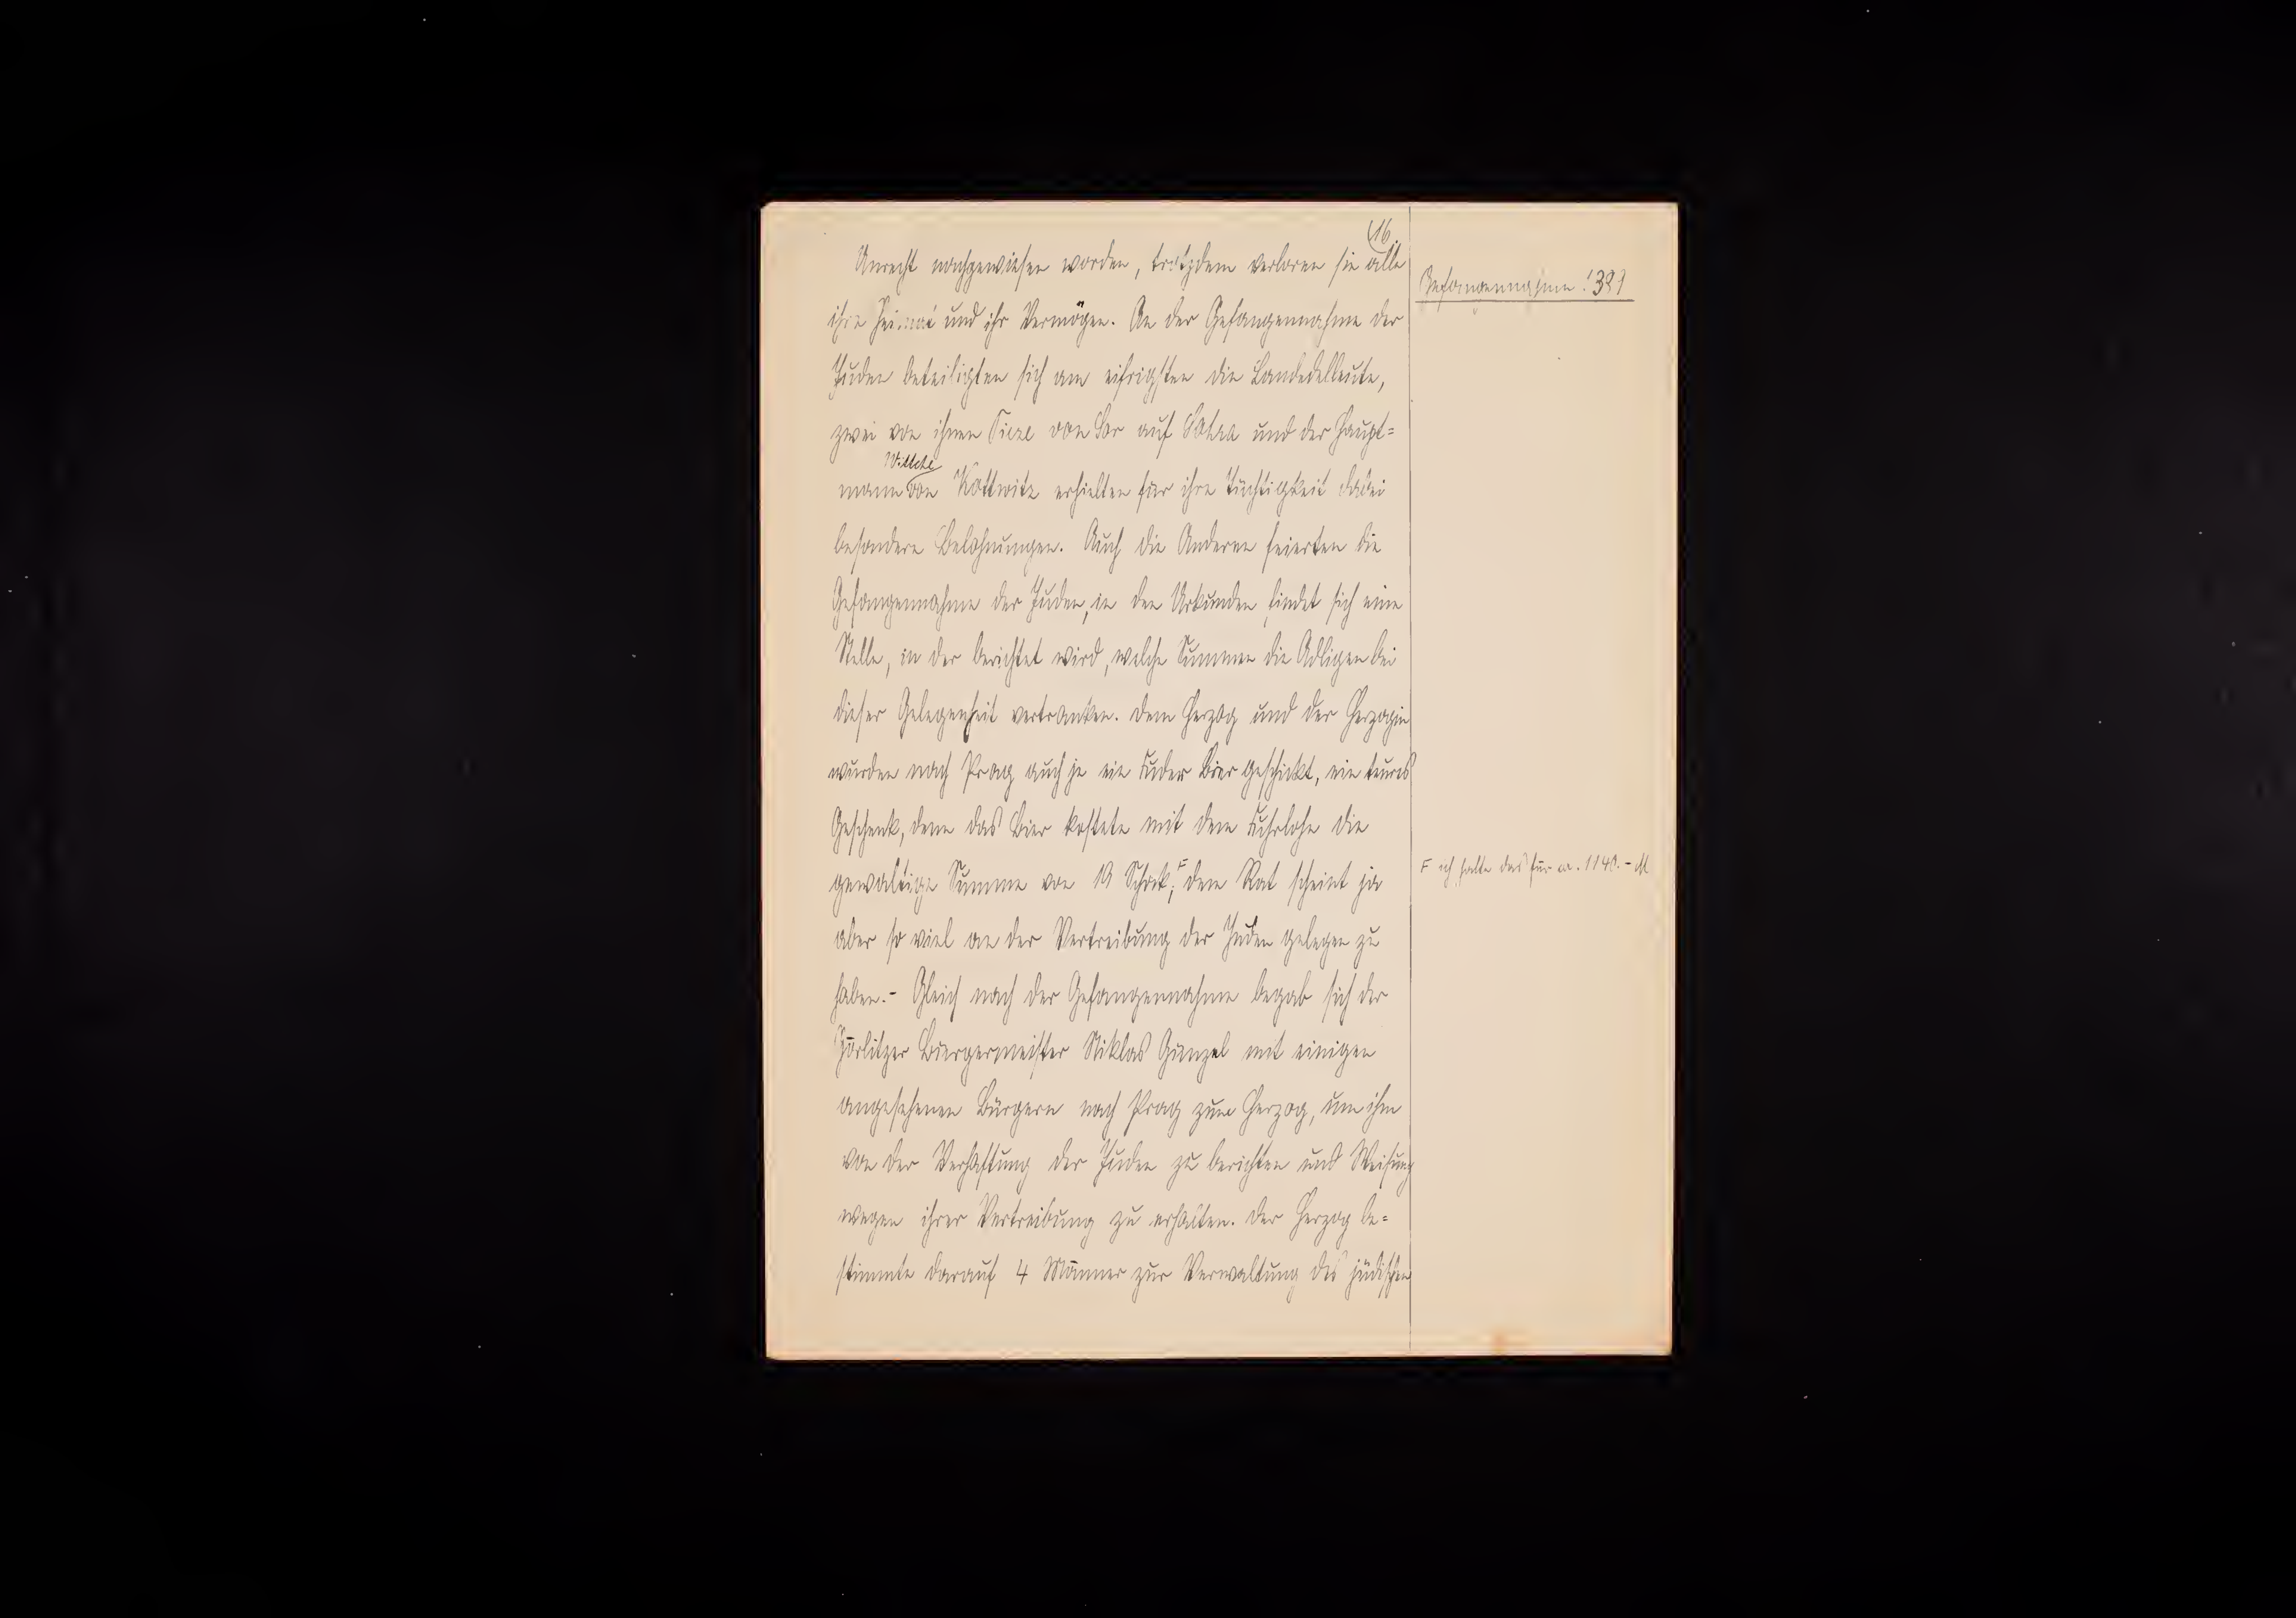 16
Unrecht nachgewiesen worden, trotzdem verloren sie alle
Gefangennahme 1389
ihre Heimat und ihr Vermögen. An der Gefangennahme der
Juden beteiligten sich am eifrigsten die Landedelleute,
zwei von ihnen von Sor auf Sohra und der Haupt=
Witsche
mann von Kottwitz erhielten für ihre Tüchtigkeit dabei
besondere Belohnungen. Auch die Anderen feierten die
Gefangennahme der Juden, in den Urkunden findet sich eine
Stelle, in der berichtet wird, welche Summen die Adligen bei
dieser Gelegenheit vertranken. Dem Herzog und der Herzogin
wurden nach Prag auch je ein Fuder Bier geschickt, ein teures
Geschenk, denn das Bier kostete mit dem Fuhrlohn die
gewaltige Summe von 19 Schock; F dem Rat scheint ja
F ich halte das für ca. 1140.- M
aber so viel an der Vertreibung der Juden gelegen zu
haben.- Gleich nach der Gefangennahme begab sich der
Görlitzer Bürgermeister Niklas Günzel mit einigen
angesehenen Bürgern nach Prag zum Herzog, um ihm
von der Verhaftung der Juden zu berichten und Weisung
wegen ihrer Vertreibung zu erhalten. Der Herzog be=
stimmte darauf 4 Männer zur Verwaltung des jüdischen